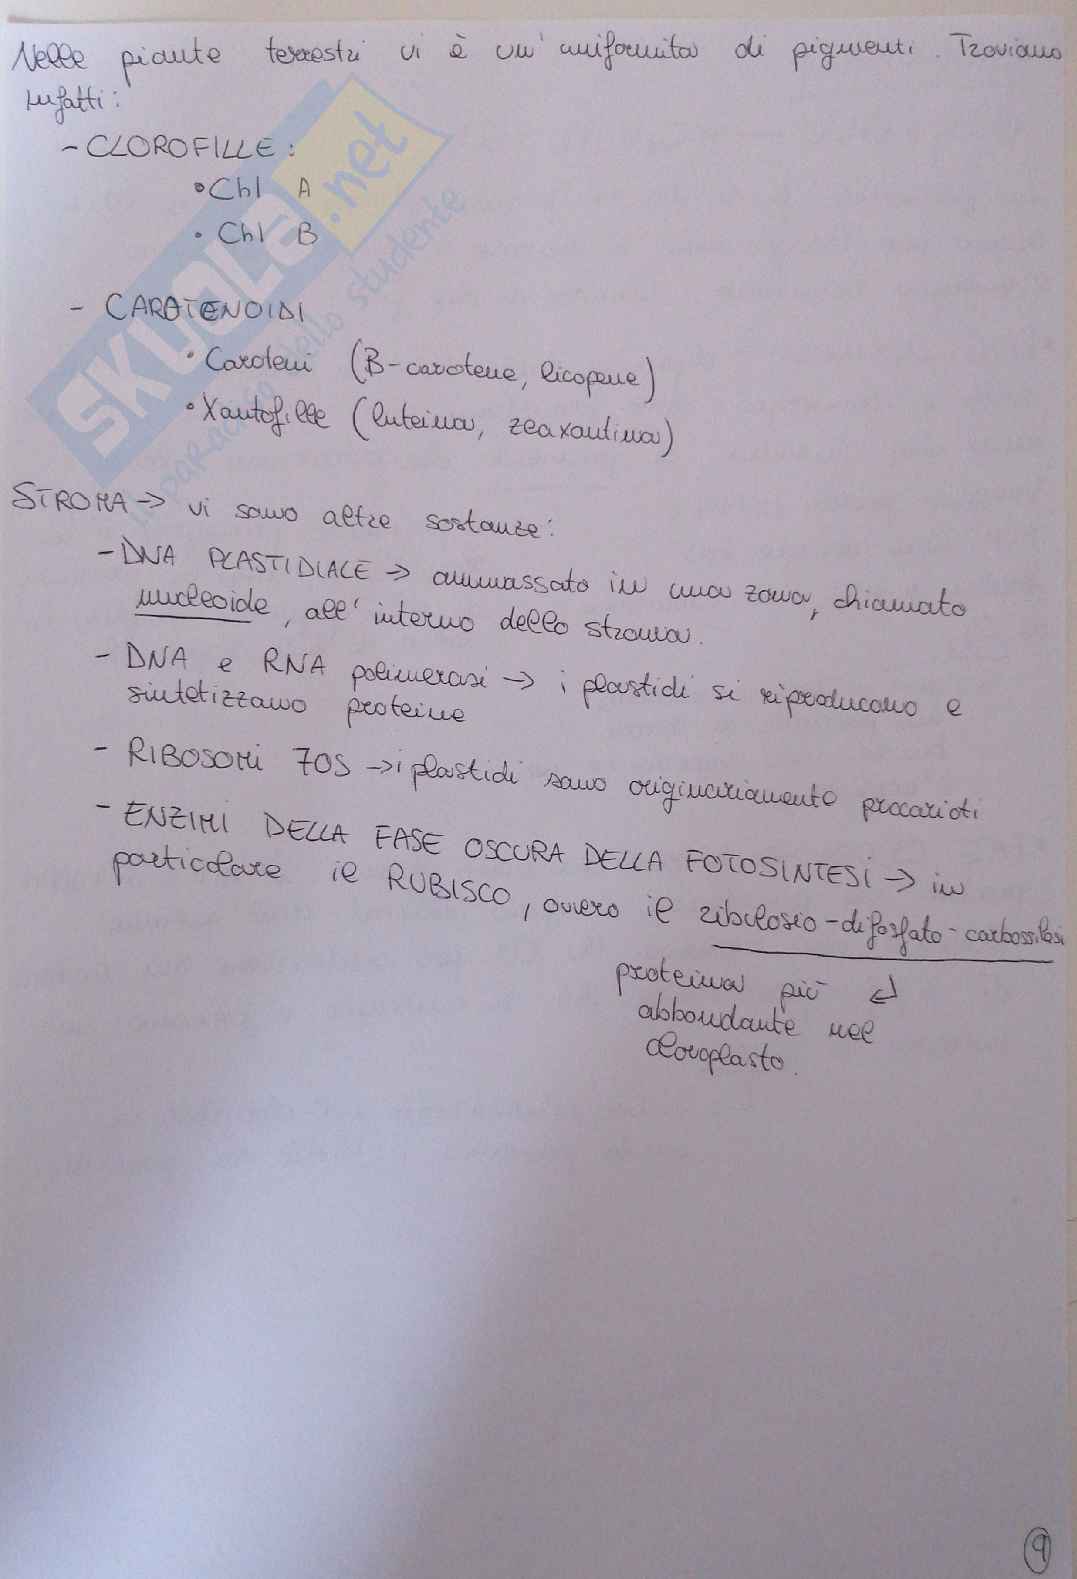 Nelle piante terrestri vi è un'uniformita di pigmenti. Troviamo
infatti:
- CLOROFILLE:
• Chl A
• Chl B
- CAROTENOIDI
• Caroteni (B-carotene, licopene)
• Xantofille (luteina, zeaxantina)
STROMA → vi sono altre sostanze:
- DNA PLASTIDIALE → ammassato in una zona, chiamato
nucleoide, all'interno dello stroma.
- DNA e RNA polimerasi → i plastidi si riproducono e
sintetizzano proteine
- RIBOSOMI 70S → i plastidi sono originariamente procarioti
- ENZIMI DELLA FASE OSCURA DELLA FOTOSINTESI → in
particolare il RUBISCO, ovvero il ribulosio-difosfato-carbossilasi
proteina più
abbondante nel
cloroplasto.
SKUOLA.net
il paradiso dello studente
9